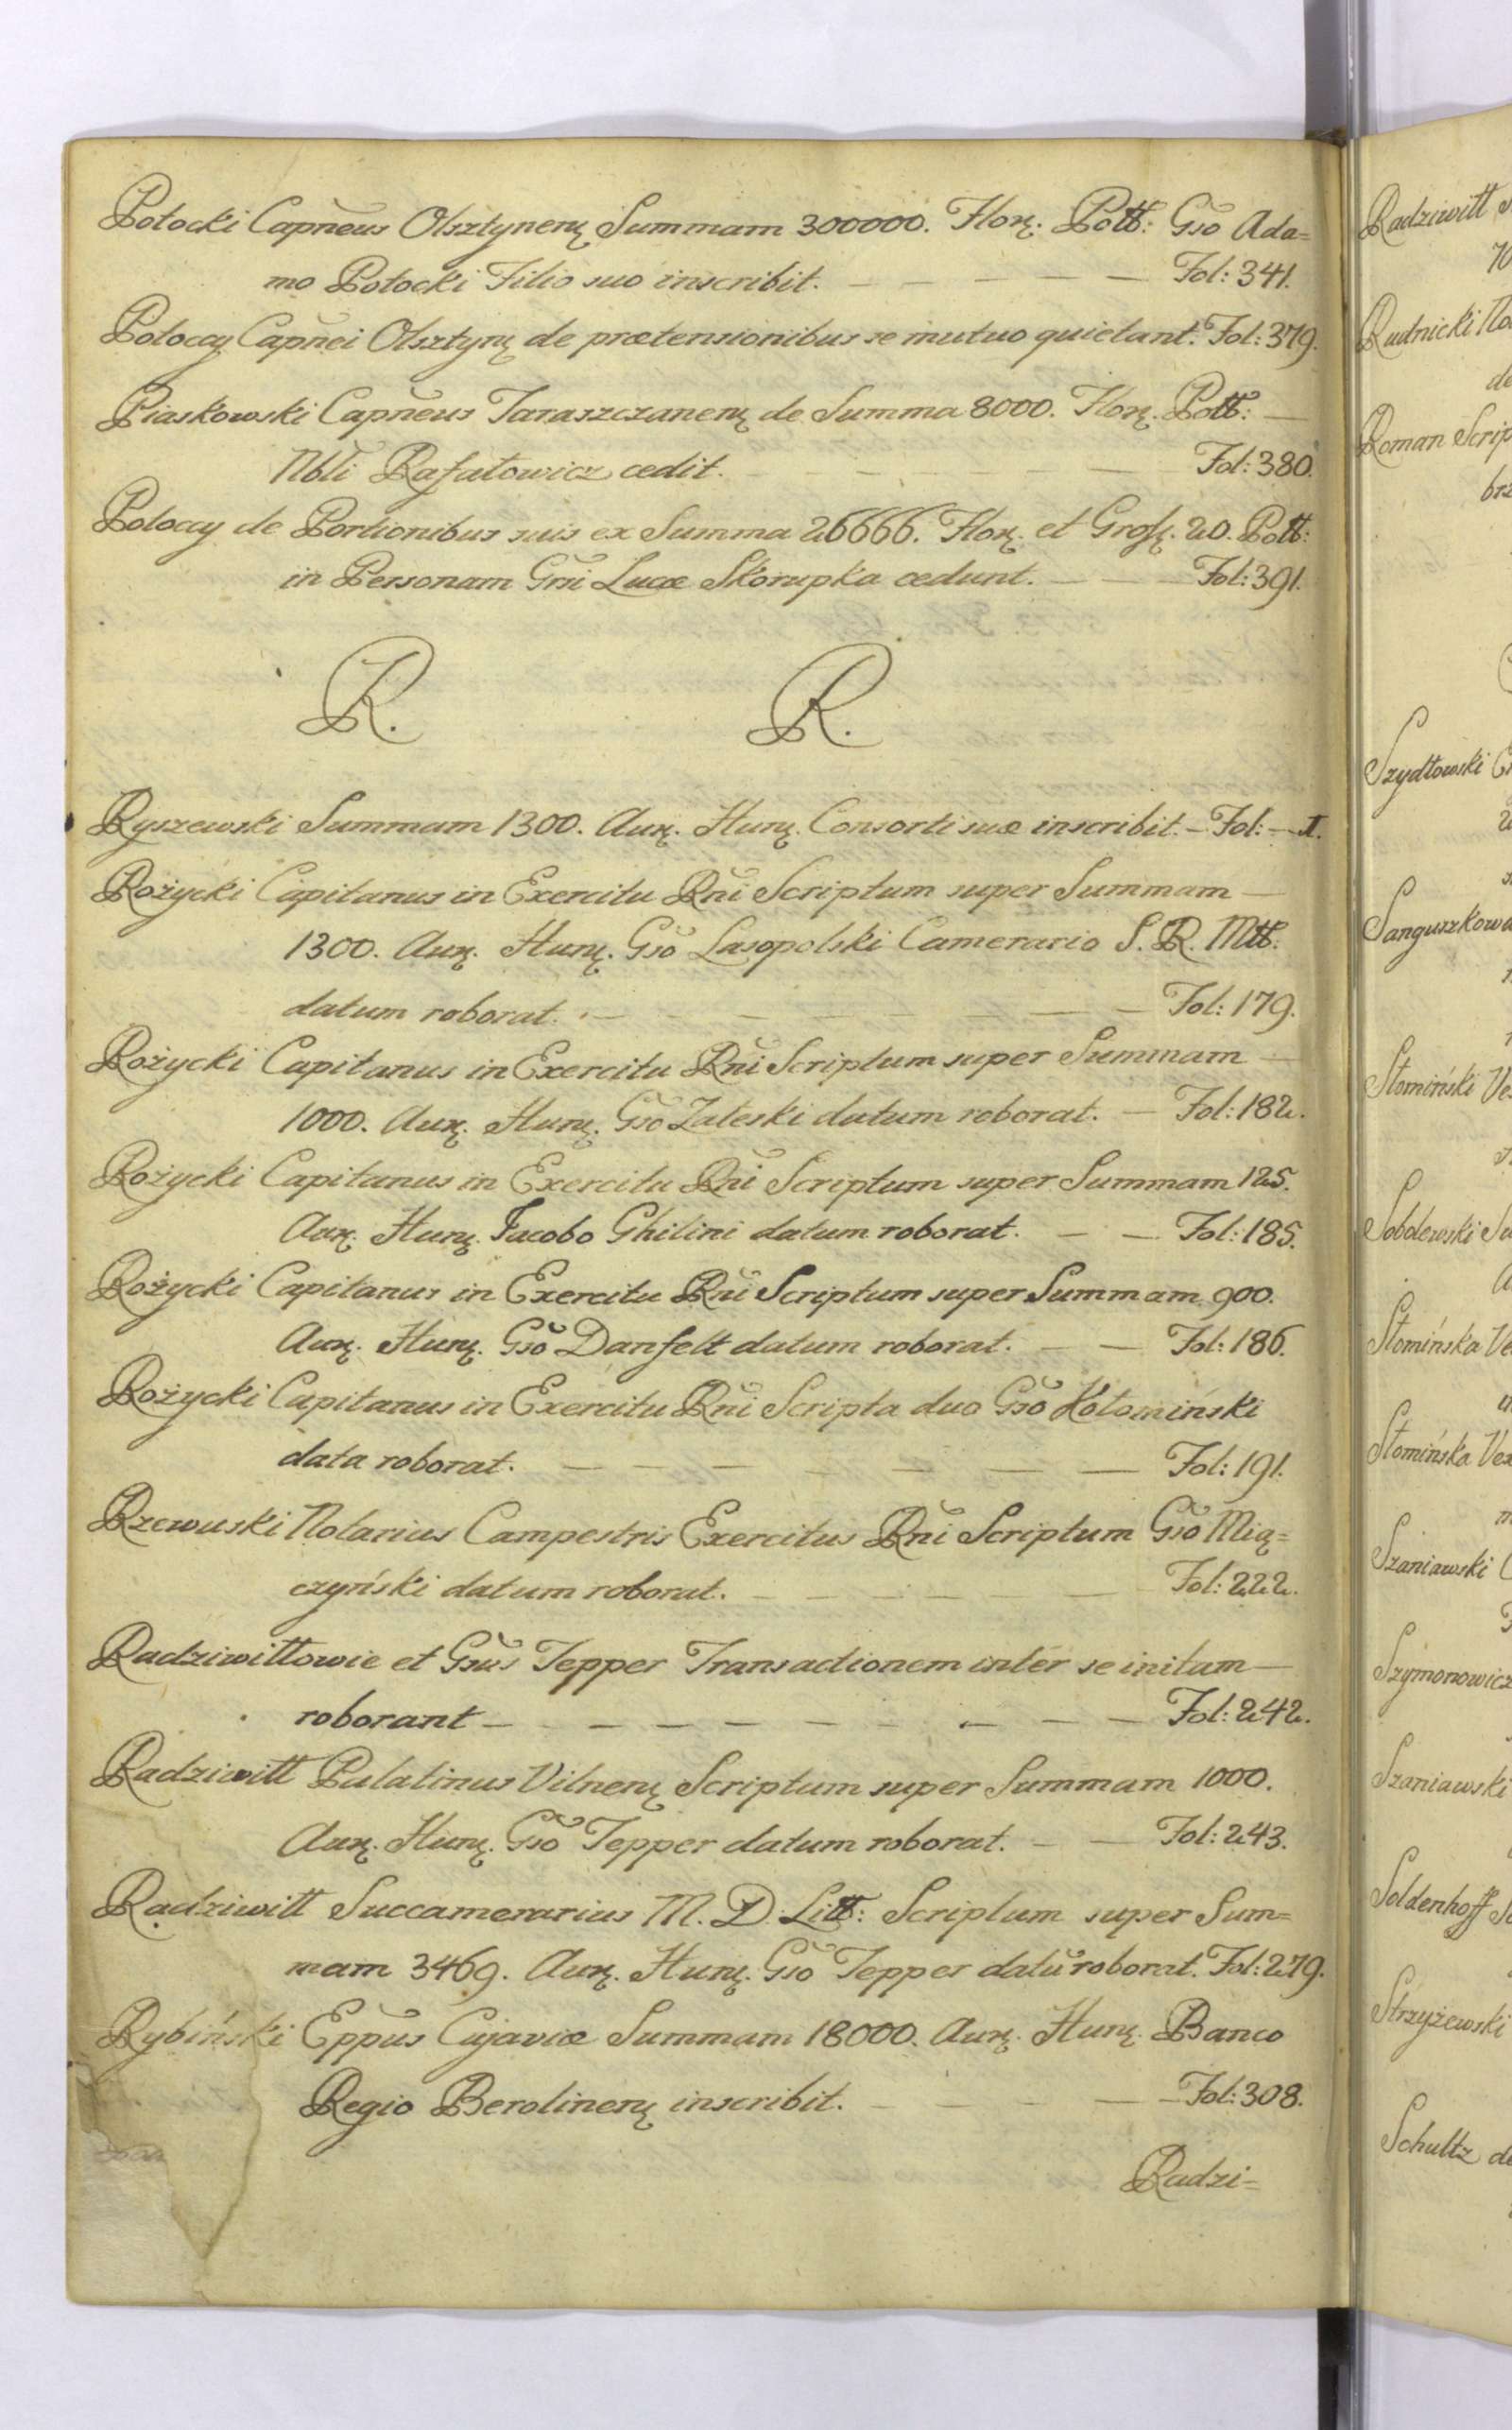 Potocki Capn̄eus Olsztynenɀ Summam 300000. Florɀ. Pollt: Gso Ada=
mo Potocki Filio suo inscribit. — — — — Fol: 341.
Potoccy Capn̄ei Olsztynɀ de prætensionibus se mutuo quietant. Fol: 379.
Piaskowski Capn̄eus Taraszczanenɀ de Summa 8000. Florɀ. Pollt: —
Nbli Rafałowicz cedit. — — — Fol: 380.
Potoccy de Portionibus suis ex Summa 26666. Florɀ. et Grossɀ. 20. Pollt:
in Personam Gsni Lucæ Skorupka cedunt. — — Fol: 391.
R. R.
Ryszewski Summam 1300. Aurɀ. Hunɀ. Consorti suæ inscribit. — Fol: — 1.
Rożycki Capitanus in Exercitu Rn̄i Scriptum super Summam —
1300. Aurɀ. Hunɀ. Gso Lasopolski Camerario S. R. Mtt.
datum roborat. — — — — — Fol: 179.
Rożycki Capitanus in Exercitu Rn̄i Scriptum super Summam —
1000. Aurɀ. Hunɀ. Gso Zaleski datum roborat. — Fol: 182.
Rożycki Capitanus in Exercitu Rn̄i Scriptum super Summam 125.
Aurɀ. Hunɀ. Jacobo Ghilini datum roborat. — — Fol: 185.
Rożycki Capitanus in Exercitu Rn̄i Scriptum super Summam 900.
Aurɀ. Hunɀ. Gso Danfelt datum roborat. — — Fol: 186.
Rożycki Capitanus in Exercitu Rn̄i Scripta duo Gso Kołominski
data roborat. — — — — — — Fol: 191.
Rzewuski Notarius Campestris Exercitus Rn̄i Scriptum Gso Mią=
czyński datum roborat. — — — — Fol: 222.
Radziwiłłowie et Gsus Tepper Transactionem inter se initam —
roborant — — — — — — — — Fol: 242.
Radziwiłł Palatinus Vilnenɀ Scriptum super Summam 1000.
Aurɀ. Hunɀ. Gso Tepper datum roborat. — — Fol: 243.
Radziwiłł Succamerarius M. D. Litt: Scriptum super Sum=
mam 3469. Aurɀ. Hunɀ. Gso Tepper datū roborat. Fol: 279.
Rybiński Eppus Cujaviæ Summam 18000. Aurɀ. Hunɀ. Banco
Regio Berolinenɀ inscribit. — — — — Fol: 308.
Radzi=
Radziwiłł
Rudnicki
de
Roman
Szydłowski
Sanguszkowa
Słomiński
Sobolewski
Słomińska
Słomińska
Szaniawski
Szymonowicz
Szaniawski
Soldenhoff
Strzyżewski
Schultz de